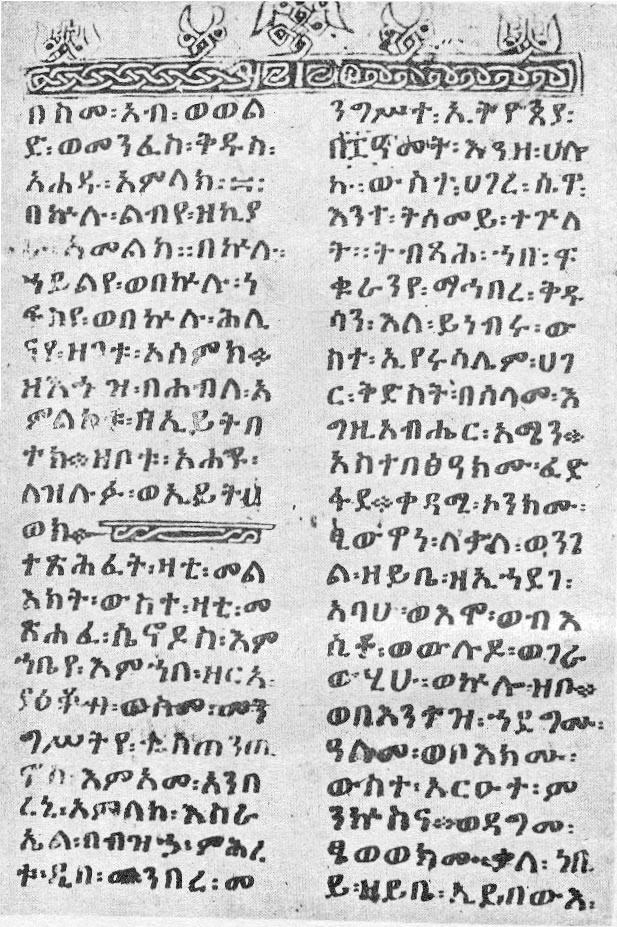 በስመ፡አብ፡ወወል
ድ፡ወመንፈስ፡ቅዱስ፡
አሐዱ፡አምላክ፡
በኵሉ፡ልብየ፡ዘኪያ
አመልክ፡፡በኵሉ፡
ኀይልየ፡ወበኵሉ፡ነ
ፍስየ፡ወበኵሉ፡ሕሊ
ናየ፡ዝንቱ፡አስምክ፨
ዘአኀዝ፡በሐብለ፡አ
ምልኮቱ፡ዘኢይትበ
ተክ፡ዘቦቱ፡አሐዱ፡
ለዝሉፉ፡ወኢይትህ
ወክ፨
ተጽሕፈት፡ዛቲ፡መል
እክት፡ውስተ፡ዛቲ፡መ
ጽሐፈ፡ሴኖዶስ፡እም
ኀቤየ፡እምኀበ፡ዘርአ፡
ያዕቆብ፡ወስመ፡መን
ግሥትየ፡ቈስጠንጢ
ኖስ፡እምአመ፡አንበ
ረኒ፡አምላከ፡እስራ
ኤል፡በብዝኃ፡ምሕረ
ቱ፡ዲበ፡መንበረ፡መ
ንግሥተ፡ኢትዮጵያ፡
በ፲ዓመት፡እንዘ፡ሀሎ
ኩ፡ውስተ፡ሀገረ፡ሴዋ፡
እንተ፡ትሰመይ፡ተጕለ
ት፡፡ትብጻሕ፡ኀበ፡ፍ
ቁራንየ፡ማኅበረ፡ቅዱ
ሳን፡እለ፡ይነብሩ፡ው
ስተ፡ኢየሩሳሌም፡ሀገ
ር፡ቅድስት፡በሰላመ፡እ
ግዚአብሔር፡አሜን፨
አስተበፅዓክሙ፡ፈድ
ፋደ፨ቀዳሚ፡ኦንክሙ፡
ፂውዋነ፡ለቃለ፡ወንጌ
ል፡ዘይቤ፡ዘኢኀደገ፡
አባሁ፡ወእሞ፡ወብእ
ሲቶ፡ወውሉዶ፡ወገራ
ውሂሁ፡፡ወኵሎ፡ዝቦ፨
ወበእንተዝ፡ኀደግሙ፡
ዓለመ፡ወቦእክሙ፡
ውስተ፡አርዑተ፡ም
ንኵስና፨ወዳግመ፡
ፄወወክሙ፡ቃለ፡ነቢ
ይ፡ዘይቤ፡ኢይበውእ፡